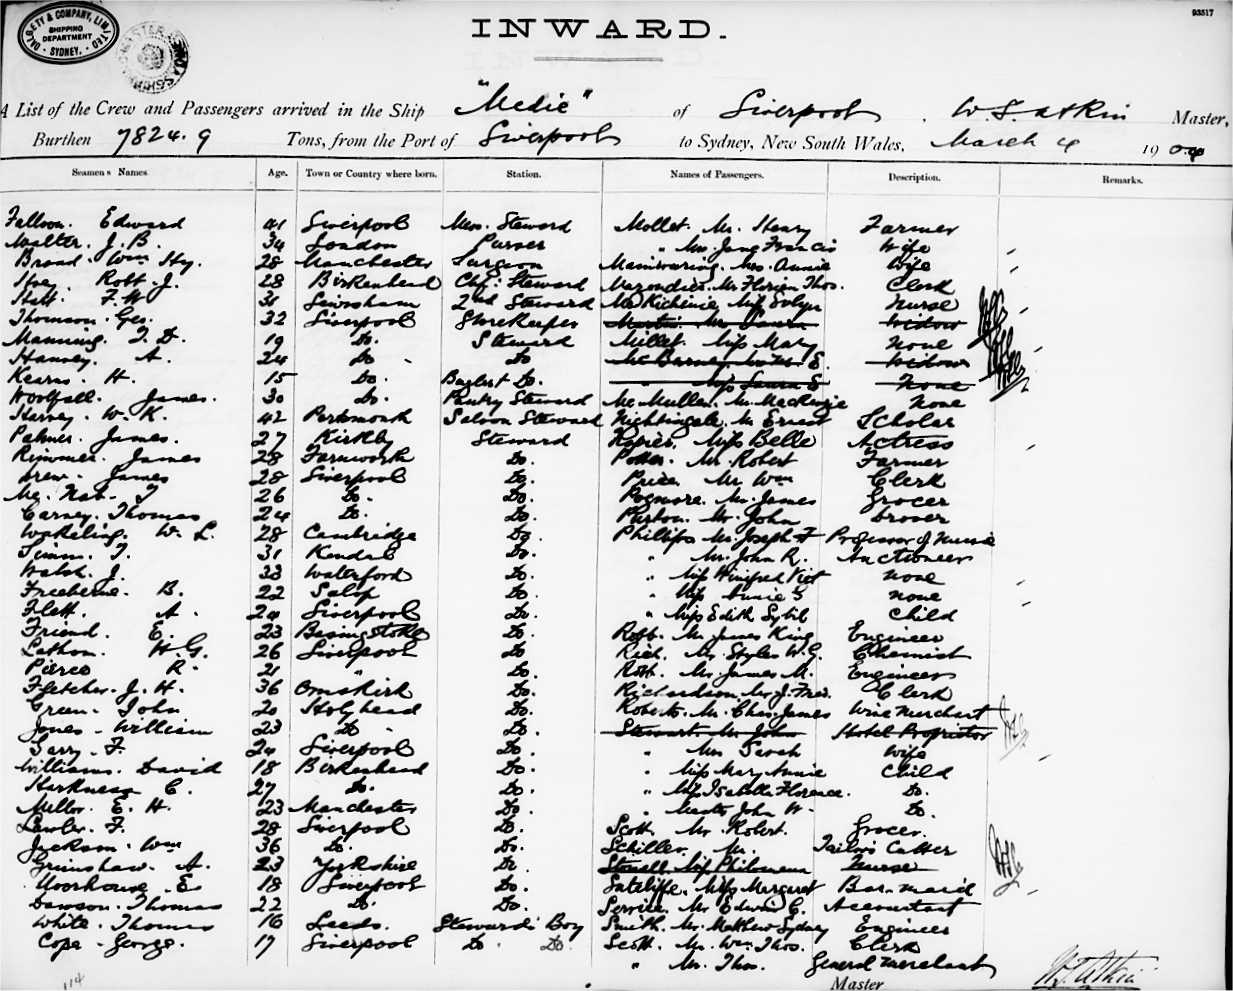 93517
DALGETY & COMPANY, LIMITED
SHIPPING
DEPARTMENT
SYDNEY.
INWARD.
A List of the Crew and Passengers arrived in the Ship "Medic" of Liverpool, W. J. Atkin Master,
Burthen 7824.9 Tons, from the Port of Liverpool to Sydney, New South Wales, March 4 1904
Seamens Names. Age. Town or Country where born. Station. Names of Passengers. Description. Remarks.
Falloon. Edward 41 Liverpool Mess. Steward Mollet. Mr. Henry Farmer
Walter. J. B. 34 London Purser " Mrs. Jane Francis Wife
Broad. Wm Hy. 28 Manchester Surgeon Mainwaring. Mrs. Annie Wife
Robt. J. 28 Birkenhead Chf: Steward Mr. Florian Thos. Clerk
Hall. F. W 31 Lewisham 2nd Steward Miss Evelyn Nurse
Thomson. Geo. 32 Liverpool Storekeeper Martin. Mrs. Laura Widow
Manning. T. D. 19 Do. Steward Millet. Miss Mary None
Harvey. A. 24 Do Do E. Widow
Kearns. H. 15 Do. Do. " Miss Laura E None
Woodfall. James. 30 Do. Pantry Steward Mc Mullen. Mr. Mackenzie None
Harvey. W. K. 42 Portsmouth Saloon Steward Nightingale. Mr Ernest Scholar
Palmer. James. 27 Kirkby Steward Napier. Miss Belle Actress
Rimmer. James 28 Farnworth Do. Potter. Mr. Robert Farmer
Drew. James 28 Liverpool Do. Price. Mr Wm Clerk
Mc. Nab. T 26 Do. Do. Pogmore. Mr. James Grocer
Carney. Thomas 24 Do. Do. Purton. Mr. John Drover
Wakeling. W. L. 28 Cambridge Do. Phillips Mr. Joseph F Professor of Music
Timms. T. 31 Kendal Do. " Mr. John R. Auctioneer
Walsh. J. 33 Waterford Do. " Miss Winifred Vict None
Freeberne. B. 22 Salop Do. " Miss Annie None
Flett. A. 24 Liverpool Do. " Miss Edith Sybil Child
Friend. E. 23 Basingstoke Do. Robb. Mr James King Engineer
Lathom. H. G. 26 Liverpool Do. Rich. Mr. Styles W. G. Chemist
Pierce R. 21 " Do. Robb. Mr. James M. Engineer
Fletcher. J. H. 36 Ormskirk Do. Richardson. Mr J. Fred. Clerk
Green. John 20 Holyhead Do. Roberts. Mr. Chas. James Wine Merchant
Jones. William 23 Do Do. Stewart. Mr. John Hotel Proprietor
Tarry. F. 24 Liverpool Do. " Mrs Sarah Wife
Williams. David 18 Birkenhead Do. " Miss Mary Annie Child
Harkness C. 27 Do. Do. " Miss Isabella Florence. Do.
Millor. E. H. 23 Manchester Do. " Master John W. Do.
Lawler. F. 28 Liverpool Do. Scott. Mr. Robert. Grocer.
Jackson. Wm 36 Do. Do. Schiller. Mr. Tailors Cutter
Grimshaw. A. 23 Yorkshire Do. Miss Philomena Nurse
Moorhouse. E. 18 Liverpool Do. Sutcliffe. Miss Margaret Bar-maid
Dawson. Thomas 22 Do. Do. Service. Mr Edwin G. Accountant
White. Thomas 16 Leeds. Stewards Boy Smith. Mr. Matthew Sydney Engineer
Cope. George. 17 Liverpool Do. Do. Scott. Mr. Wm Thos. Clerk
" Mr. Thos. General Merchant
114 Master W. J. Atkin